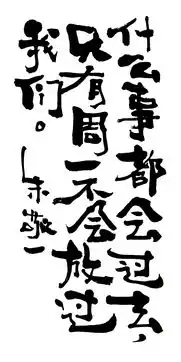 什么事都会过去，
只有周一不会放过
我们。
朱敬一